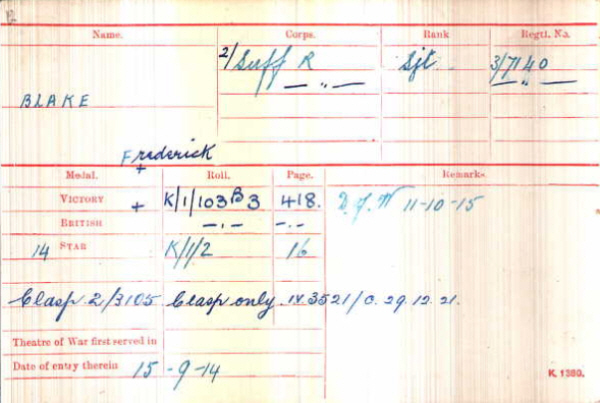 Name. Corps. Rank Regtl. No.
2/Suff R Sjt. 3/7140
— " — — " —
BLAKE
Frederick
+
Medal. Roll. Page. Remarks.
VICTORY + K/1/103 B3 418. D.of.W 11-10-15
BRITISH — " — — " —
14 STAR K/1/2 16
Clasp 2/3105 Clasp only. IV.3521/0. 29.12.21.
Theatre of War first served in
Date of entry therein 15 - 9 - 14
K. 1380.